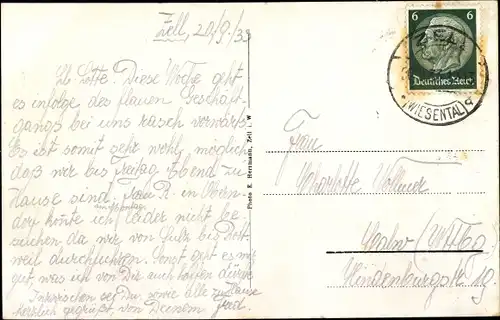 Zell, 20/9.33
Lb Lotte! Diese Woche geht
es infolge des flauen Geschäft-
gangs bei uns rasch vorwärts.
Es ist somit sehr wohl möglich
daß wir bis Freitag Abend zu
Hause sind. R. in Obern-
am Montag
dorf konnte ich leider nicht be-
suchen da wir von Sulz bis Rott-
weil durchfuhren. Sonst geht es mir
gut was ich von Dir auch hoffen dürfte.
Inzwischen sei Du, sowie alle zu Hause
herzlich gegrüßt, von Deinem
Photo E. Herrmann, Zell i. W.
6 6
Deutsches Reich
ZELL
(WIESENTAL)
Frau
Charlotte Vollmer
Calw (Wttbg)
Hindenburgstr 19.